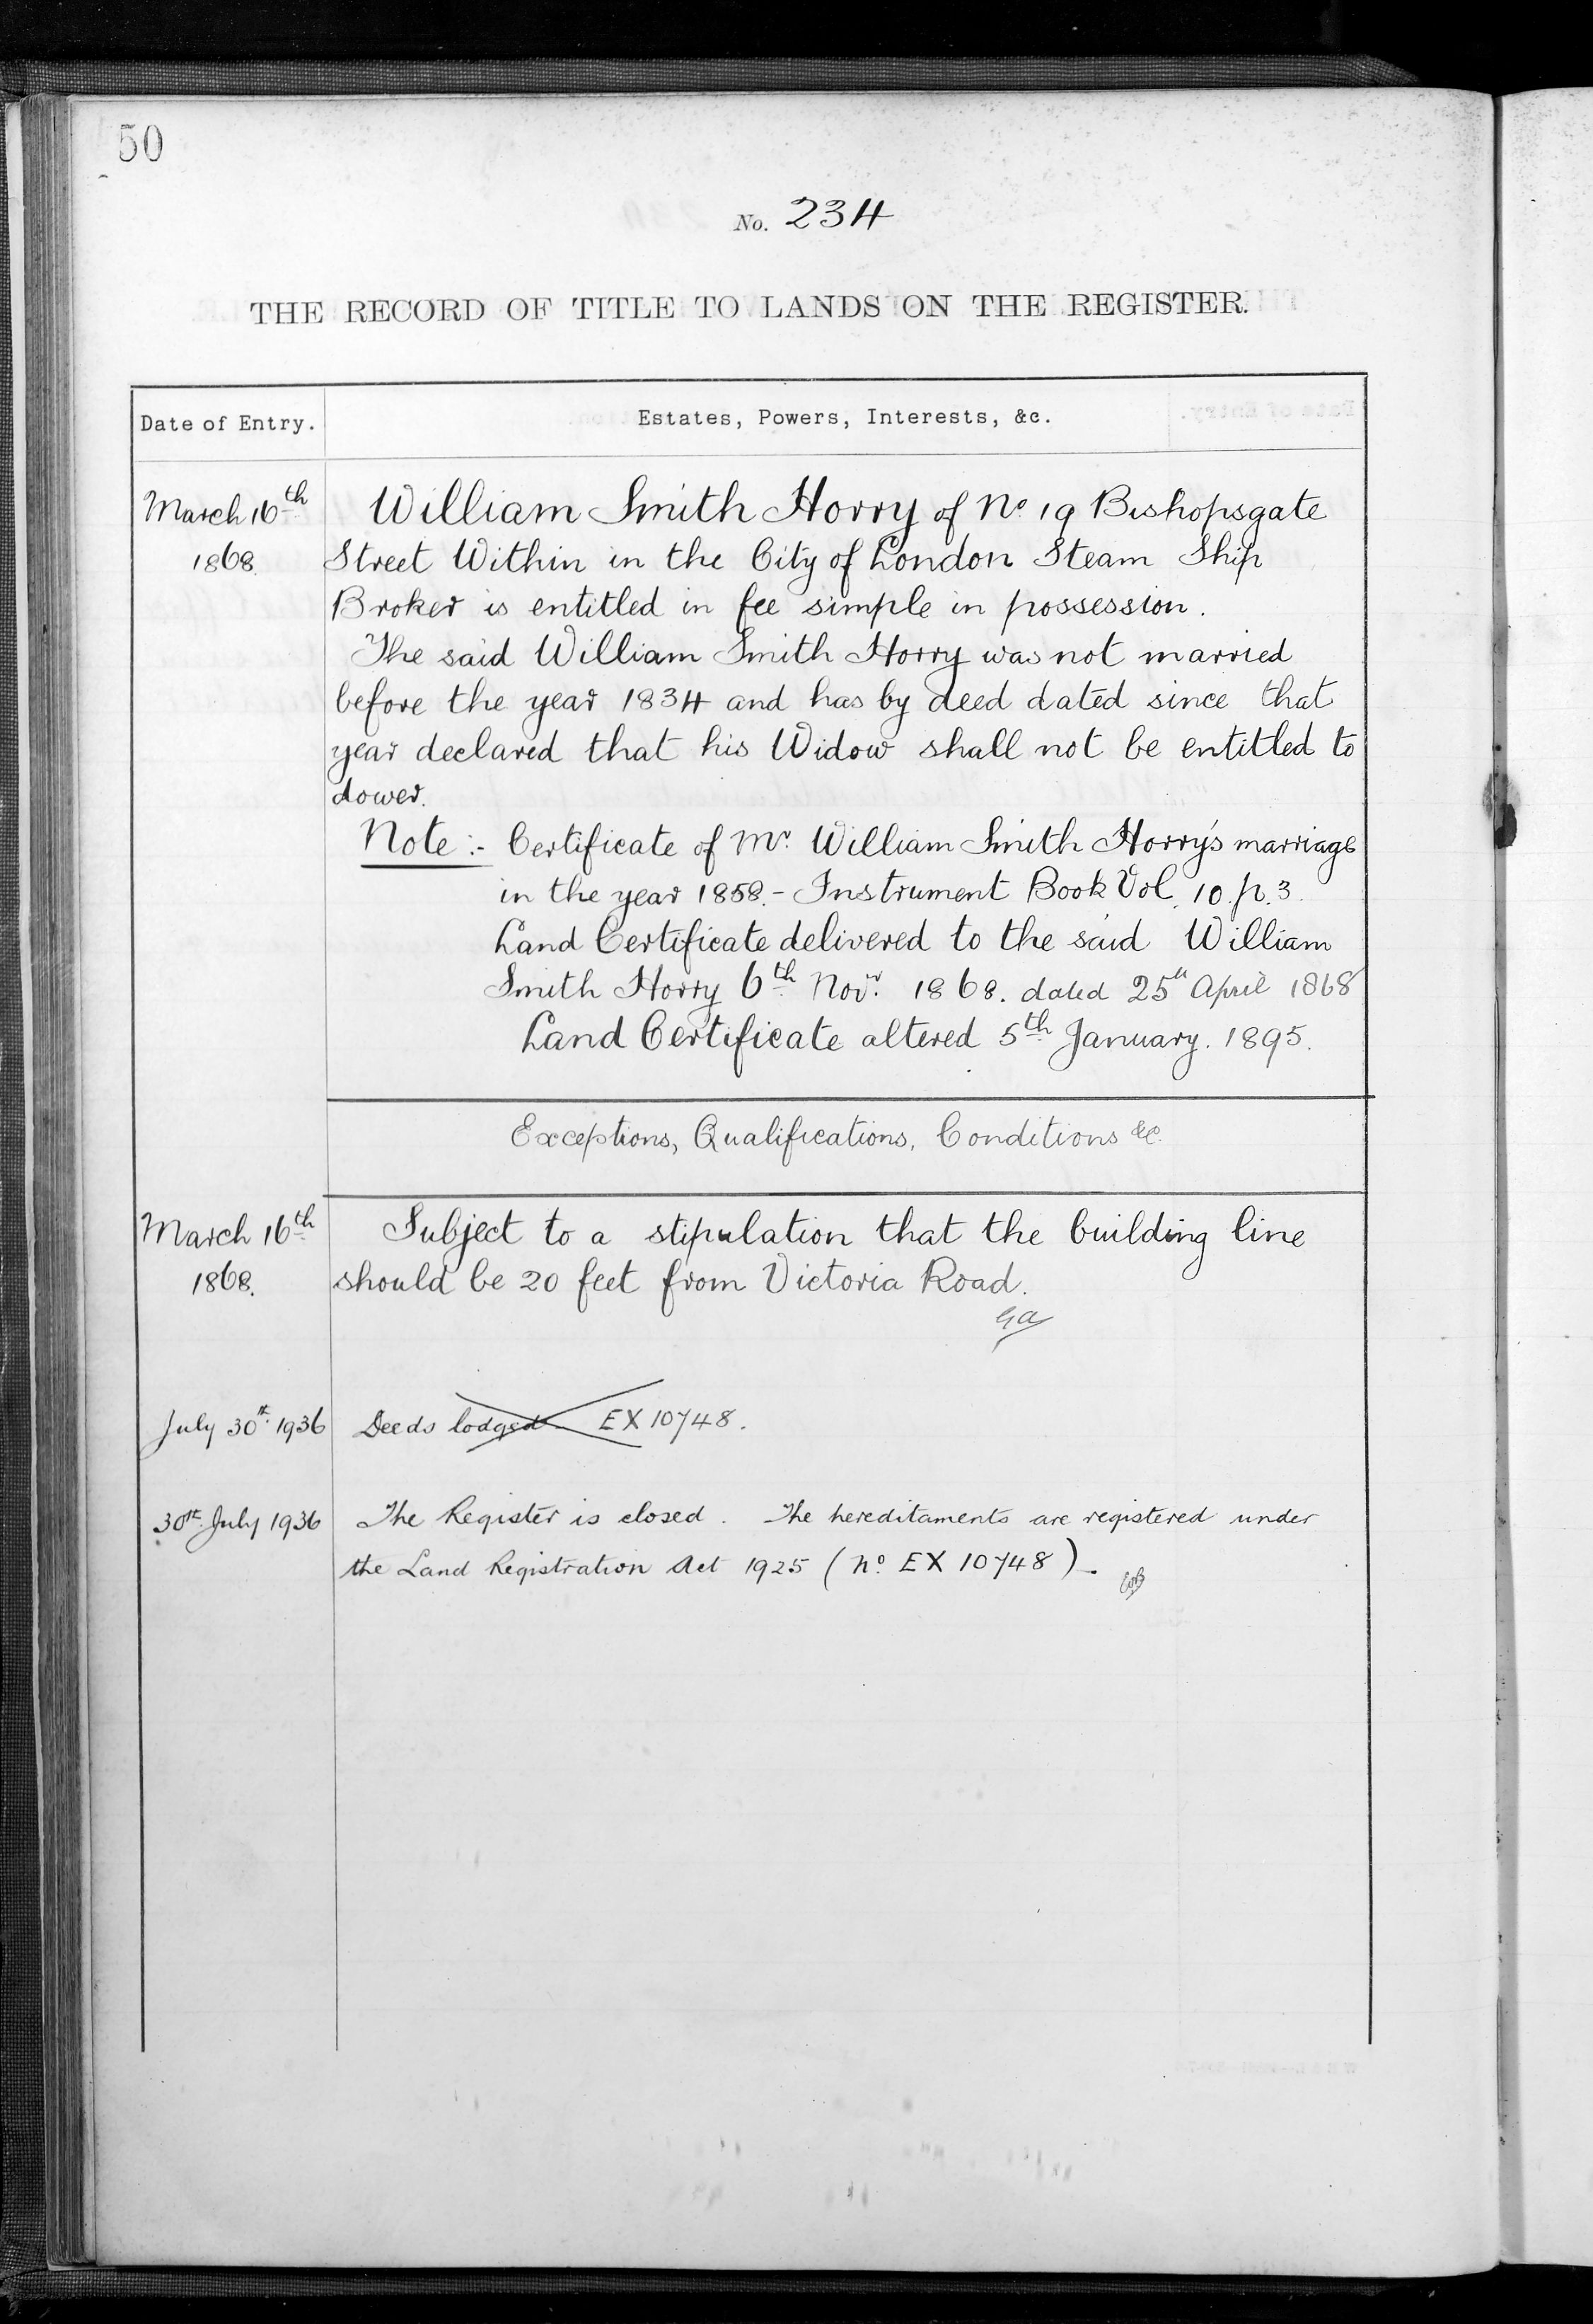 50
No. 234
THE RECORD OF TITLE TO LANDS ON THE REGISTER.
Date of Entry.
Estates, Powers, Interests, &c.
March 16th
1868.
William Smith Horry of No 19 Bishopsgate
Street Within in the City of London Steam Ship
Broker is entitled in fee simple in possession.
The said William Smith Horry was not married
before the year 1834 and has by deed dated since that
year declared that his Widow shall not be entitled to
dower.
Note :- Certificate of Mr. William Smith Horry's marriage
in the year 1858. - Instrument Book Vol. 10. p. 3.
Land Certificate delivered to the said William
Smith Horry 6th Novr. 1868. dated 25th April 1868
Land Certificate altered 5th January. 1895.
Exceptions, Qualifications, Conditions &c.
March 16th
1868.
Subject to a stipulation that the building line
should be 20 feet from Victoria Road.
July 30th. 1936
Deeds lodged EX 10748.
30th. July 1936
The Register is closed. The hereditaments are registered under
the Land Registration Act 1925 (No. EX 10748).